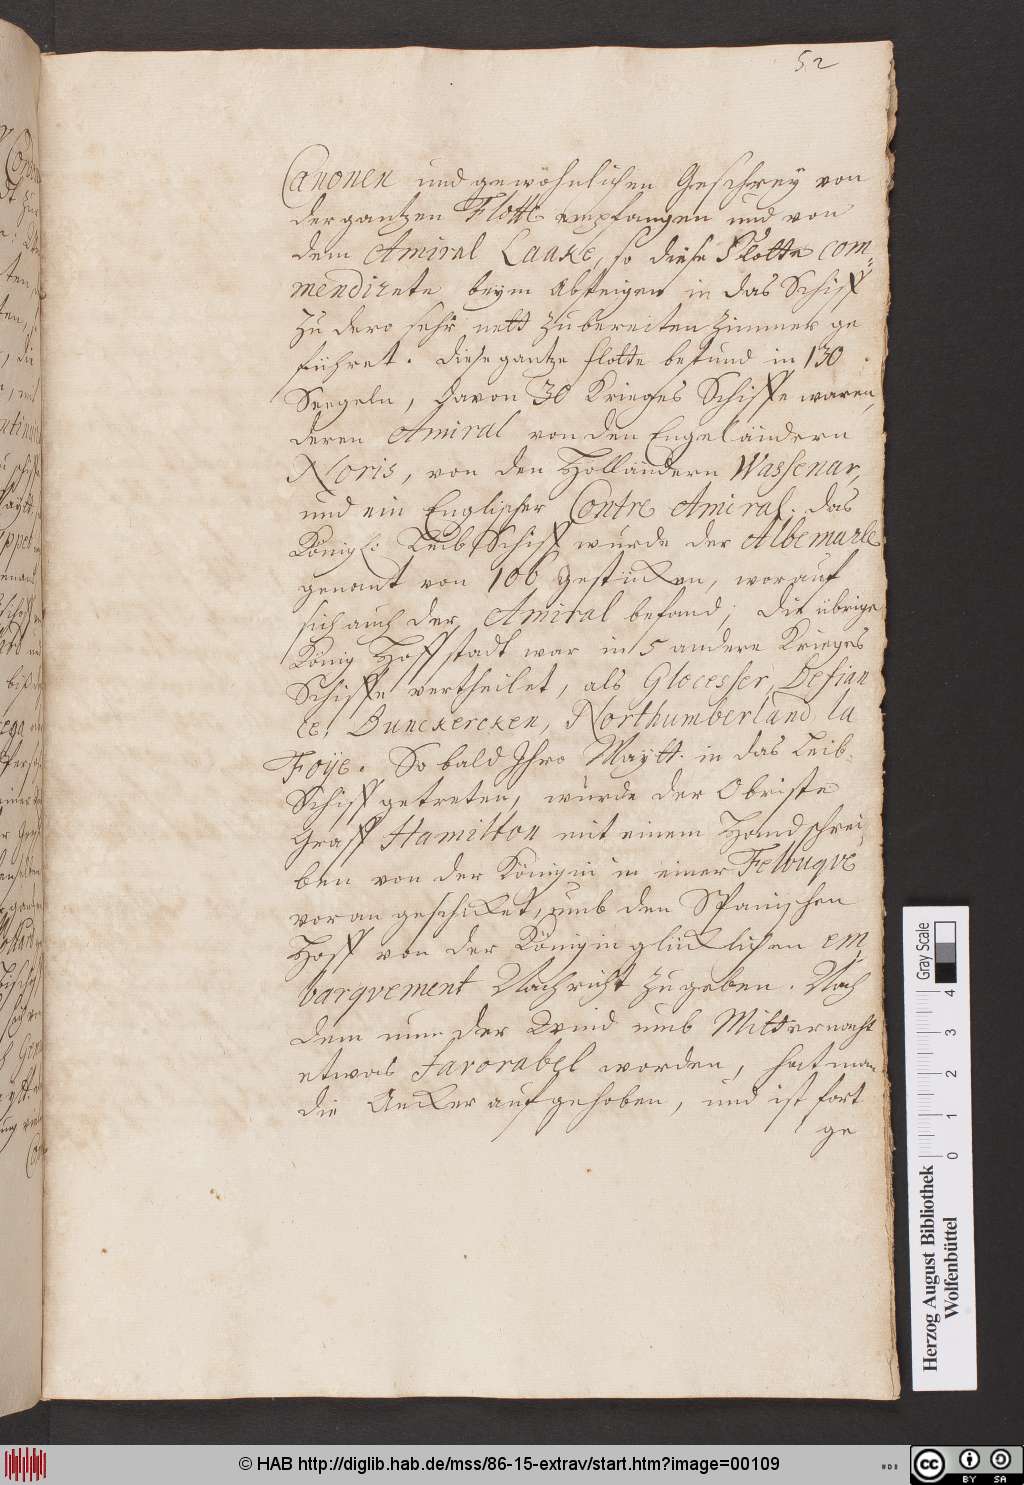 52
Canonen und gewöhnlichen Geschrey von
der gantzen Flotte empfangen und von
dem Amiral Laake, so diese Flotte com=
mendirete beym Absteigen in das Schiff
zu dero sehr nett zubereiten Zimmer ge
führet. diese gantze flotte bestund in 130
Seegeln, davon 30 Krieges Schiffe waren,
deren Amiral von den Engeländern
Noris, von den Holländern Wassenar,
und ein Englischer Contre Amiral. das
Königl. Leib Schiff wurde der Albemarle
genant von 100 gestücken, worauf
sich auch der Amiral befand; die übrige
König Hoffstadt war in 5 andere Krieges
Schiffe vertheilet, als Glocesser, Defian
ce, Dunckercken, Northumberland, la
Foÿe. So bald Ihro Maÿtt. in das Leib-
Schiff getreten, wurde der Obriste
Graff Hamilton mit einem Handschrei-
ben von der Königin in einer Felouqve
voran geschicket, umb den Spanischen
Hoff von der Königin glücklichen em
barqvement Nachricht zu geben. Nach
dem nun der Wind umb Mitternacht
etwas favorabel worden, hat man
die Ancker aufgehoben, und ist fort
ge
Gray Scale
0 1 2 3 4
Herzog August Bibliothek
Wolfenbüttel
© HAB http://diglib.hab.de/mss/86-15-extrav/start.htm?image=00109
cc BY SA